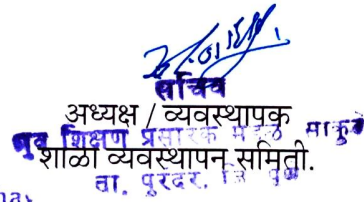 सचिव
अध्यक्ष / व्यवस्थापक
शिक्षण प्रसारक मंडळ
शाळा व्यवस्थापन समिती.
ता. पुरंदर, जि. पुणे